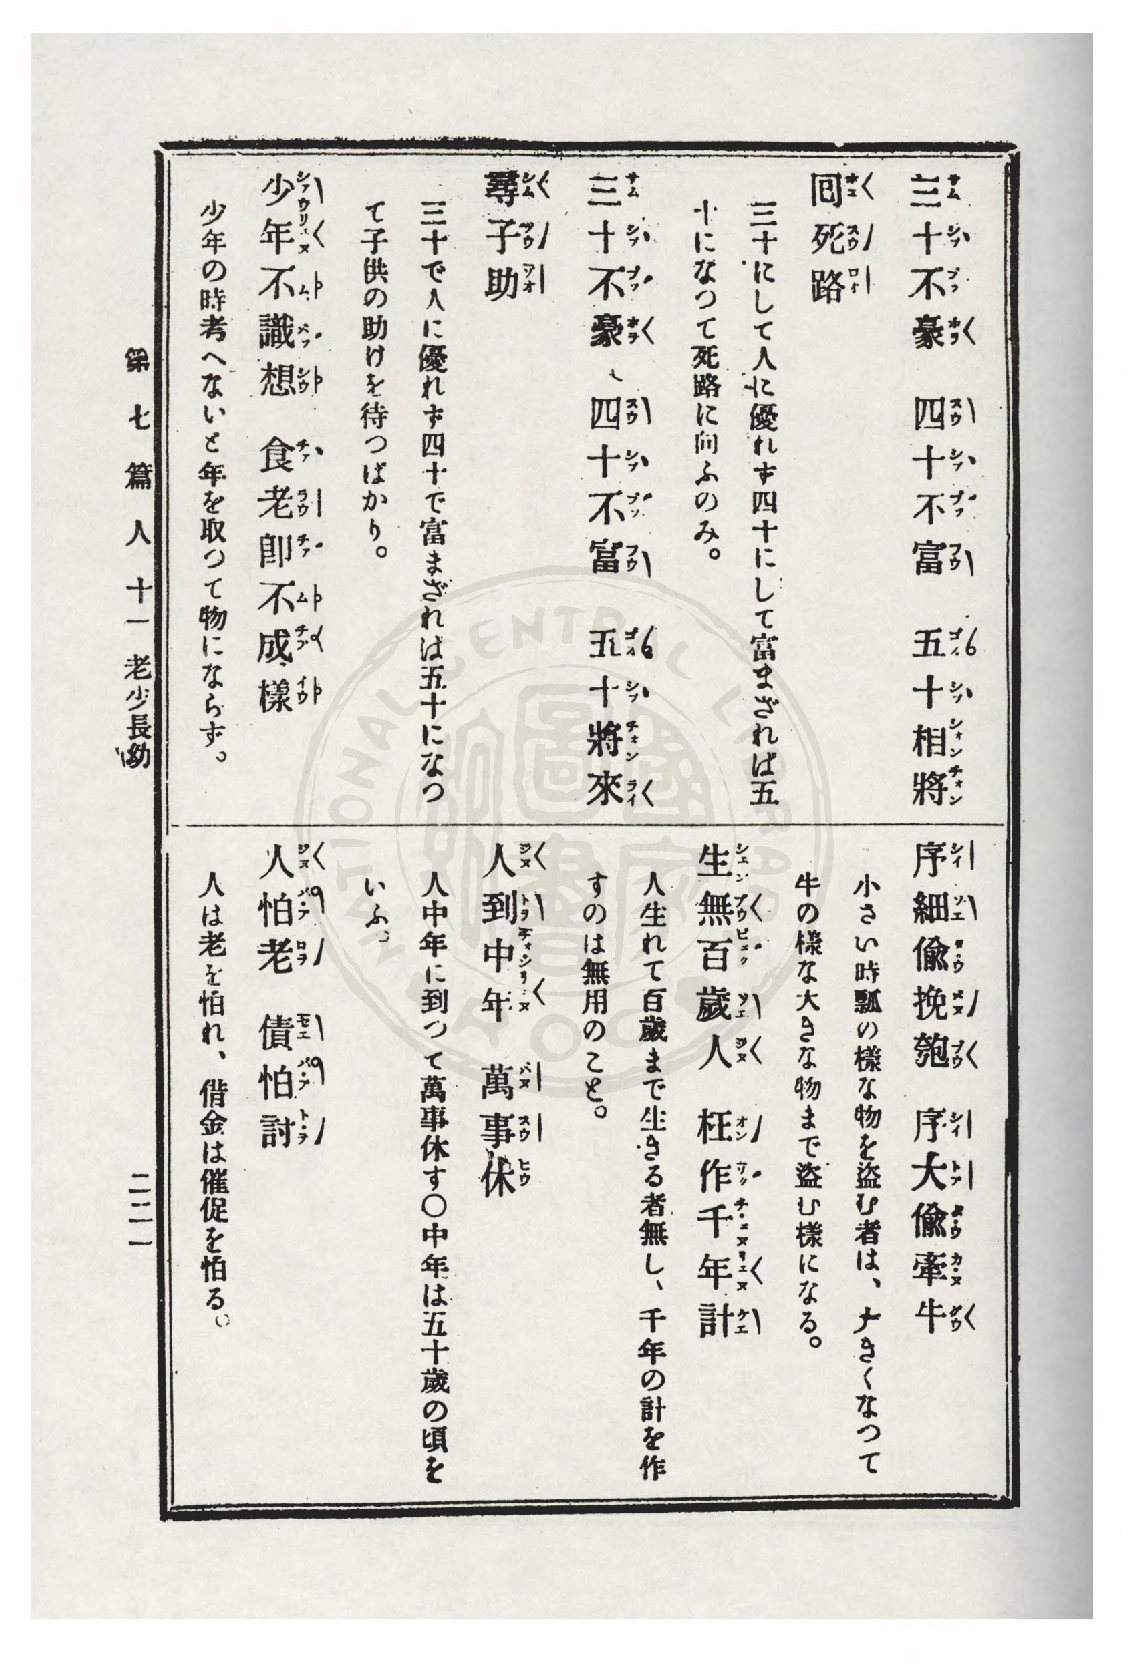 三十不豪　四十不富　五十相將
回死路
三十にして人に優れず四十にして富まざれば五
十になつて死路に向ふのみ。
三十不豪、四十不富　五十將來
尋子助
三十で人に優れず四十で富まざれば五十になつ
て子供の助けを待つばかり。
少年不識想　食老卽不成樣
少年の時考へないと年を取つて物にならず。
序細偸挽匏　序大偸牽牛
小さい時瓢の樣な物を盜む者は、大きくなつて
牛の樣な大きな物まで盜む樣になる。
生無百歲人　枉作千年計
人生れて百歲まで生きる者無し、千年の計を作
すのは無用のこと。
人到中年　萬事休
人中年に到つて萬事休す〇中年は五十歲の頃を
いふ。
人怕老　債怕討
人は老を怕れ、借金は催促を怕る。
第七篇　人　十一　老少長幼
二二一
NATIONAL CENTRAL LIBRARY
R.O.C.
國家圖書館